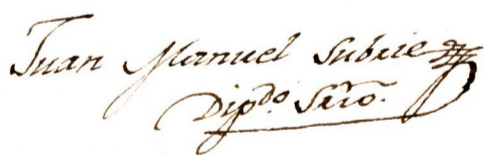 Juan Manuel Subrie
Dipdo. Srio.